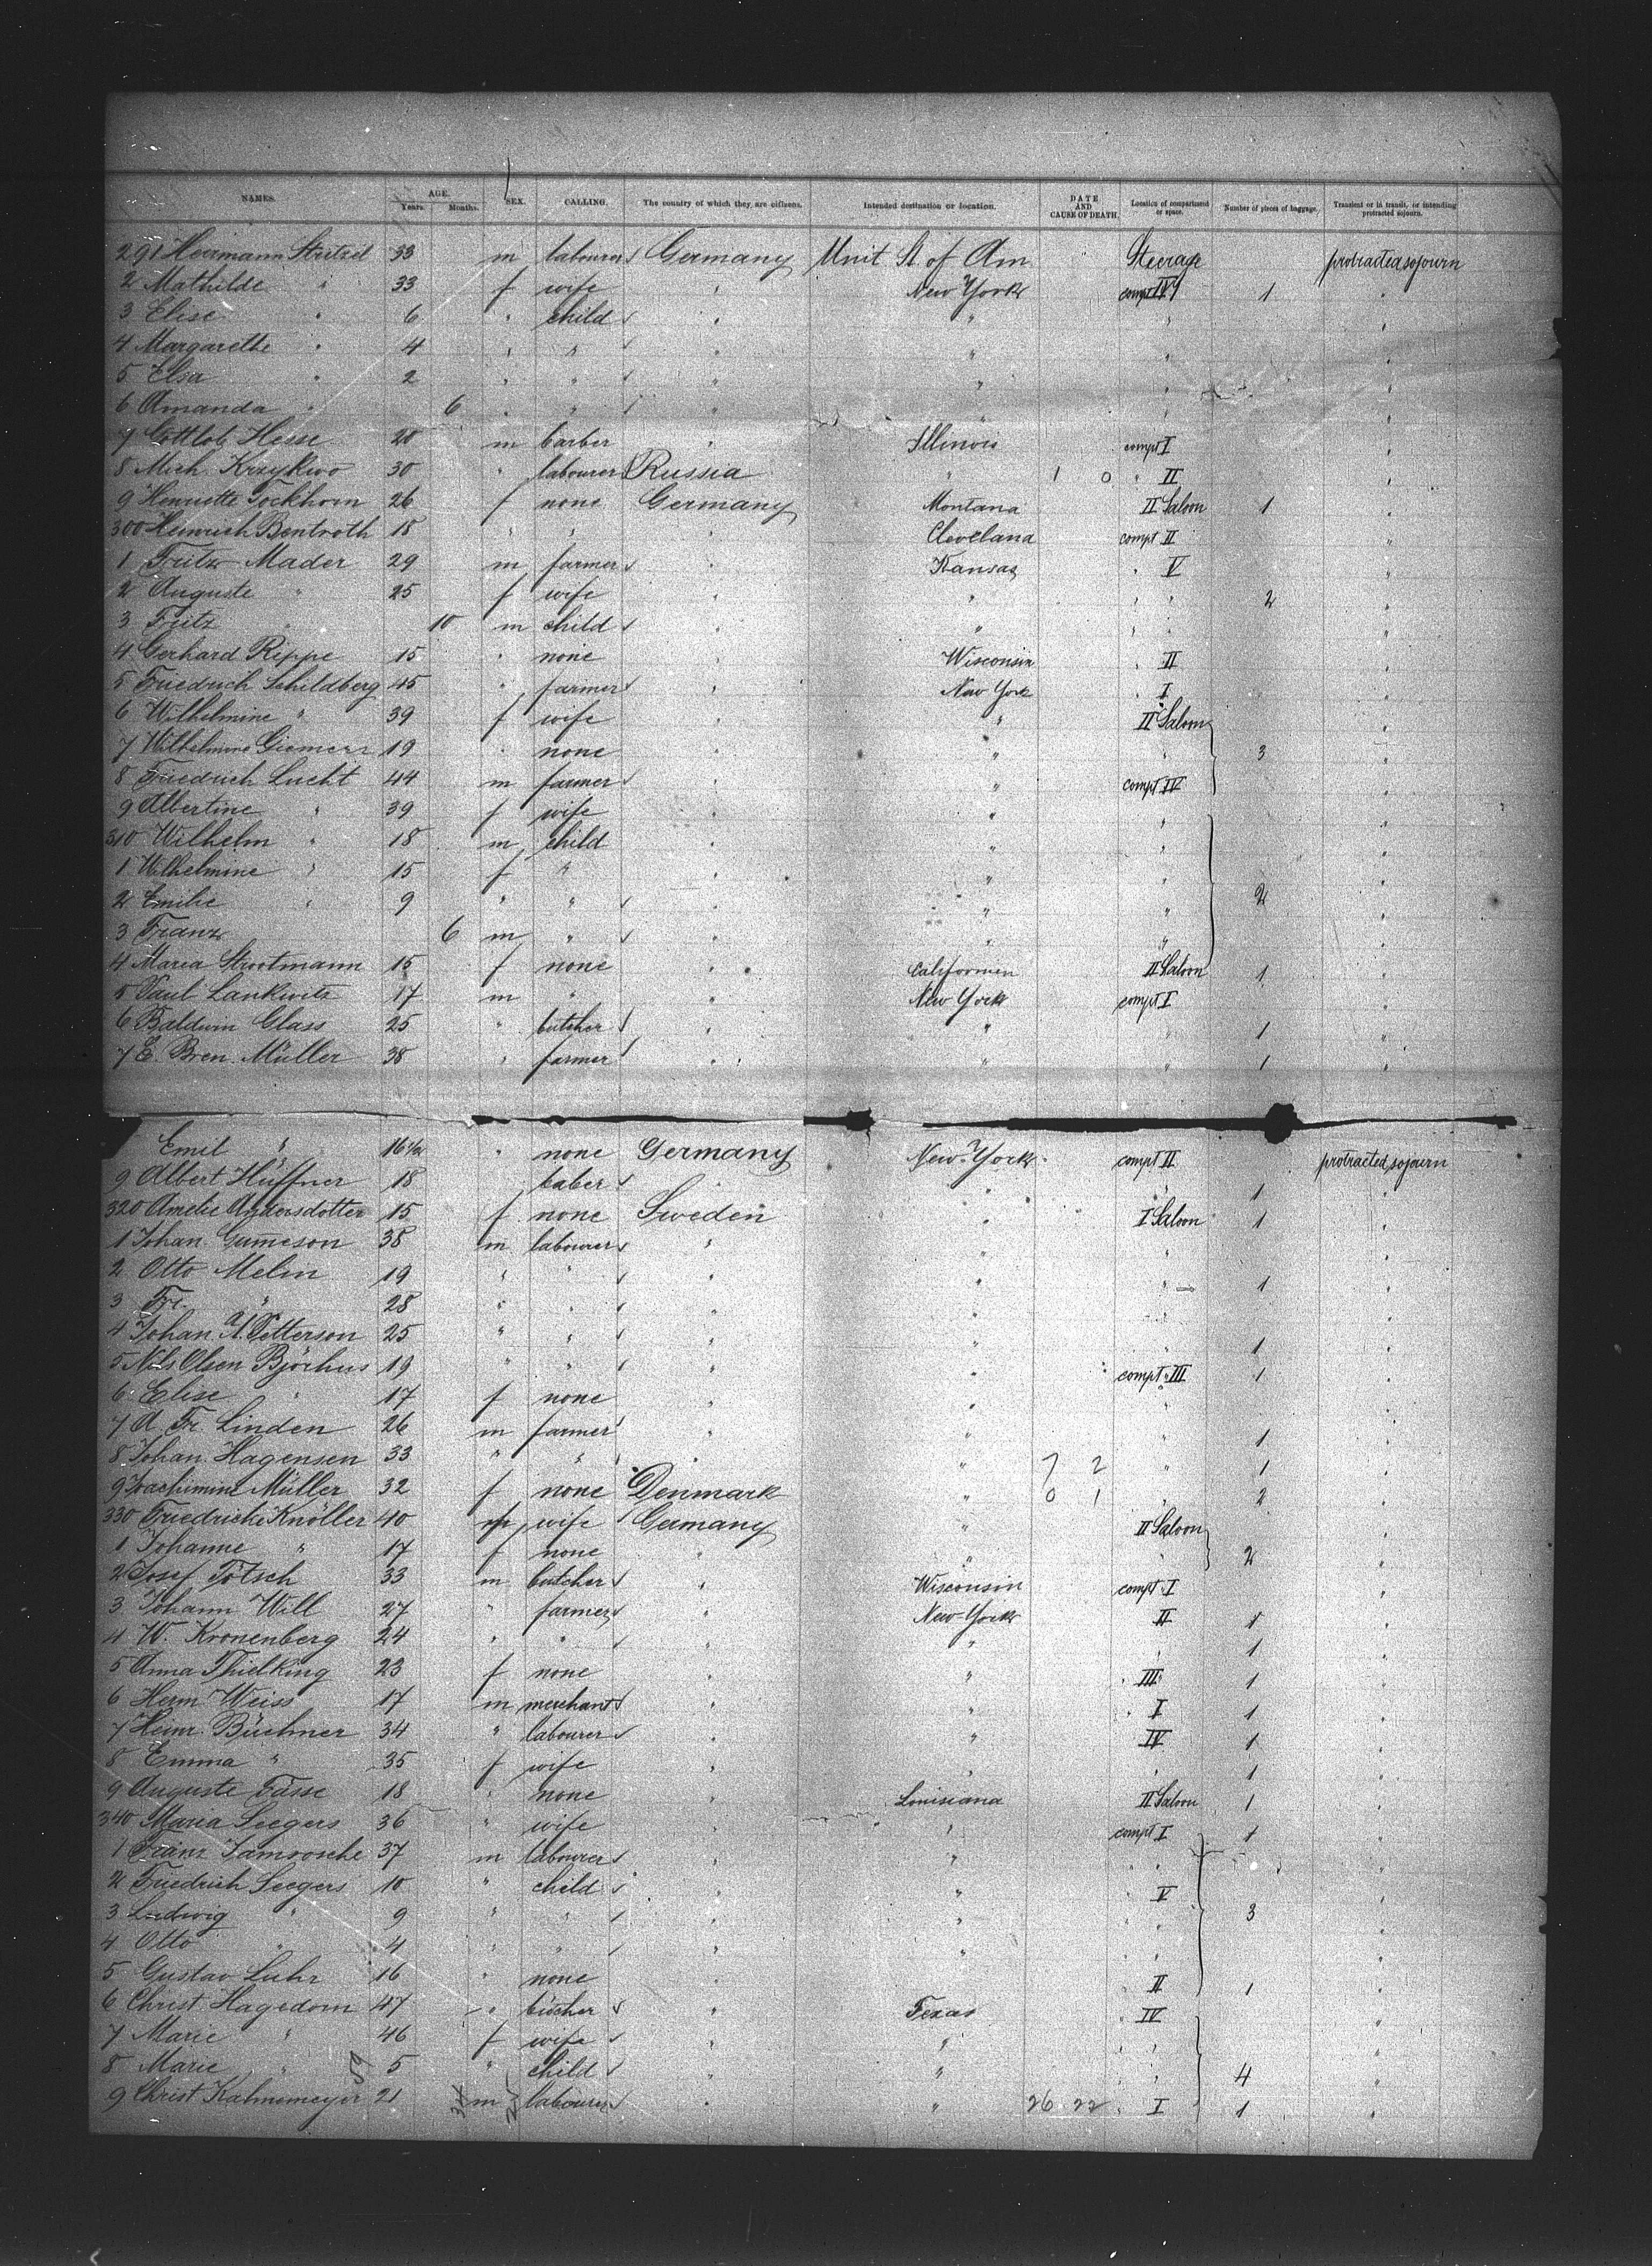 NAMES. AGE. Years. Months. SEX. CALLING. The country of which they are citizens. Intended destination or location. DATE AND CAUSE OF DEATH. Location of compartment or space. Number of pieces of baggage. Transient or in transit, or intending protracted sojourn.
291 Herrmann Stritzel 33 m labourer Germany Unit St of Am Steerage protracted sojourn
2 Mathilde " 33 f wife " New York compt IV 1 "
3 Elise " 6 " child " " " "
4 Margarethe " 4 " " " " " "
5 Elsa " 2 " " " " " "
6 Amanda " 6 " " " " " "
7 Gottlob Hesse 28 m barber " Illinois compt I "
8 Mich. Krzykwo 30 " labourer Russia " 1 0 " II "
9 Henriette Tockhorn 26 f none Germany Montana II Saloon 1 "
300 Heinrich Bentroth 18 " " " Cleveland compt II "
1 Fritz Mader 29 m farmer " Kansas " V "
2 Auguste " 25 f wife " " " " 2 "
3 Fritz " 10 m child " " " " "
4 Gerhard Rippe 15 " none " Wisconsin " II "
5 Friedrich Schildberg 45 " farmer " New York " I "
6 Wilhelmine " 39 f wife " " II Saloon "
7 Wilhelmine 19 " none " " " 3 "
8 Friedrich Lucht 44 m farmer " " compt IV "
9 Albertine " 39 f wife " " " "
310 Wilhelm " 18 m child " " " "
1 Wilhelmine " 15 f " " " " "
2 Emilie " 9 " " " " " 2 "
3 Franz 6 m " " " " "
4 Maria Strootmann 15 f none " Californien II Saloon 1 "
5 Paul Lankwitz 17 m " " New York compt I "
6 Baldwin Glass 25 " butcher " " " 1 "
7 E. Bren. Müller 38 " farmer " " " 1 "
Emil " 16 1/2 " none Germany New-York compt II protracted sojourn
9 Albert Hüffner 18 " baber " " 1 "
320 Amelie Andersdotter 15 f none Sweden " I Saloon 1 "
1 Johan Gumeson 38 m labourer " " " "
2 Otto Melin 19 " " " " " 1 "
3 Fr. " 28 " " " " " "
4 Johan A. Petterson 25 " " " " " 1 "
5 Nils Olsen Björhus 19 " " " " compt III 1 "
6 Elise " 17 f none " " " "
7 A. Fr. Linden 26 m farmer " " " 1 "
8 Johan Hagensen 33 " " " " 7 2 " 1 "
9 Joachimine Müller 32 f none Denmark " 0 1 " 2 "
330 Friedricke Knöller 40 wife Germany " II Saloon "
1 Johanne " 17 f none " " " 2 "
2 Josef Tötsch 33 m butcher " Wisconsin compt I "
3 Johann Will 27 " farmer " New-York II 1 "
4 W. Kronenberg 24 " " " " 1 "
5 Anna Thielking 23 f none " " " III 1 "
6 Herm Weiss 17 m merchant " " " I 1 "
7 Heinr. Büchner 34 " labourer " " IV 1 "
8 Emma " 35 f wife " " " 1 "
9 Auguste Fasse 18 " none " Louisiana II Saloon 1 "
340 Maria Seegers 36 " wife " " compt I 1 "
1 Franz 37 m labourer " " " " "
2 Friedrich Seegers 10 " child " " " V "
3 Ludwig " 9 " " " " " " 3 "
4 Otto " 4 " " " " " " "
5 Gustav Luhr 16 " none " " II 1 "
6 Christ. Hagedorn 47 " " Texas " IV "
7 Marie " 46 f wife " " " "
8 Marie " 59 5 " child " " " " 4 "
9 Christ Kahnemeyer 21 34 m 25 labourer " " 26 22 " I 1 "